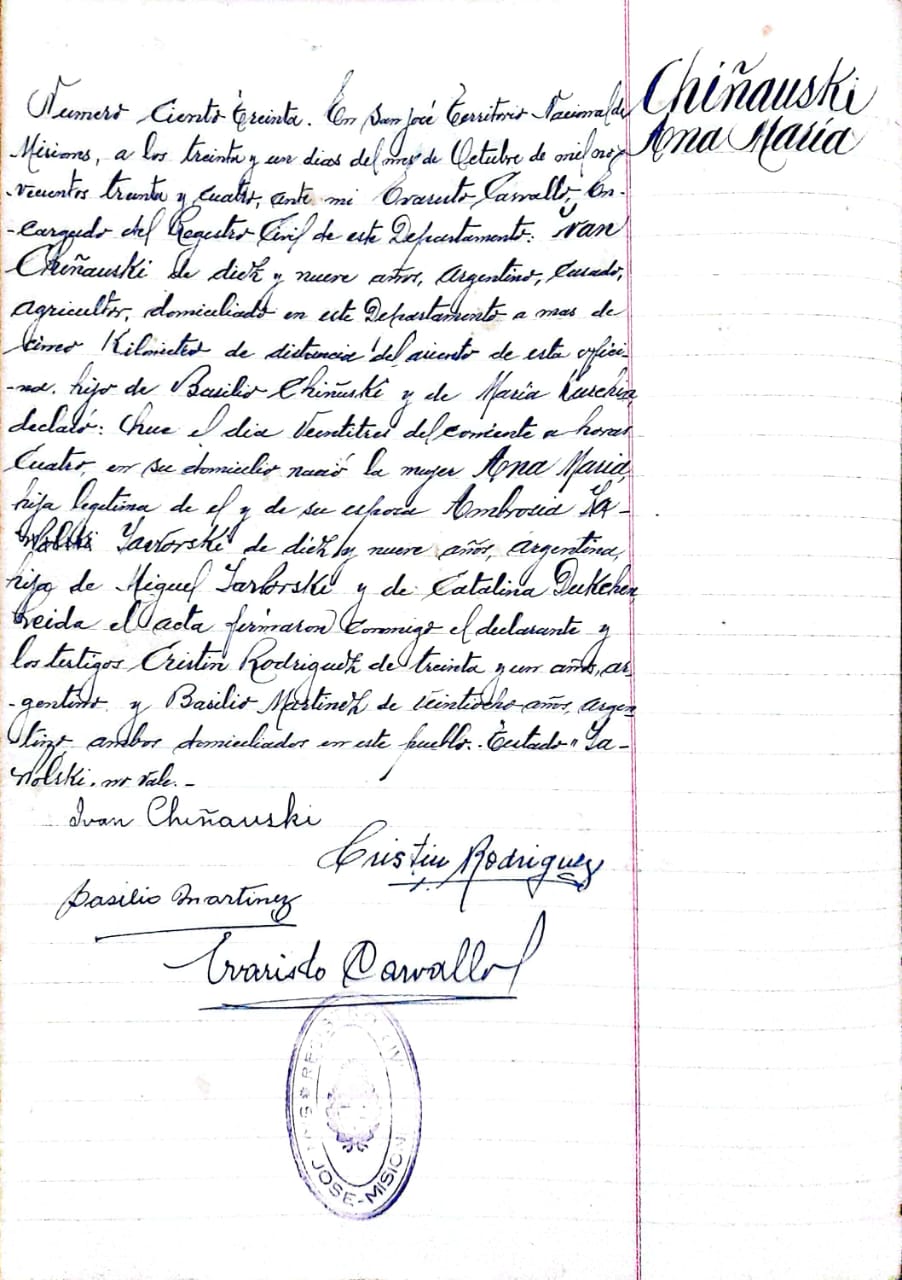 Chiñauski
Ana María
Numero Ciento Treinta. En San José Territorio Nacional de
Misiones, a los treinta y un dias del mes de Octubre de mil no-
-vecientos treinta y cuatro, ante mi Evaristo Carvallo, En-
-cargado del Registro Civil de este Departamento: Ivan
Chiñauski de diez y nueve años, Argentino, Casado,
agricultor, domiciliado en este Departamento a mas de
cinco Kilometro de distancia del asiento de esta ofici-
-na. hijo de Basilio Chiñuski y de María
declaró: Que el dia Veintitres del corriente a horas
Cuatro, en su domicilio nació la mujer Ana Maria,
hija legitima de el y de su esposa Ambrosia Ya-
Yavorski de diez y nueve años, argentina,
hija de Miguel Yavorski y de Catalina
Leida el acta firmaron conmigo el declarante y
los testigos Cristin Rodriguez de treinta y un años, ar-
-gentino y Basilio Martinez de veintiocho años, argen
tino, ambos domiciliados en este pueblo. Testado "Ya-
wolski. no vale.-
Ivan Chiñauski
Cristin Rodriguez
Basilio Martinez
Evaristo Carvallo
JOSE-MISION